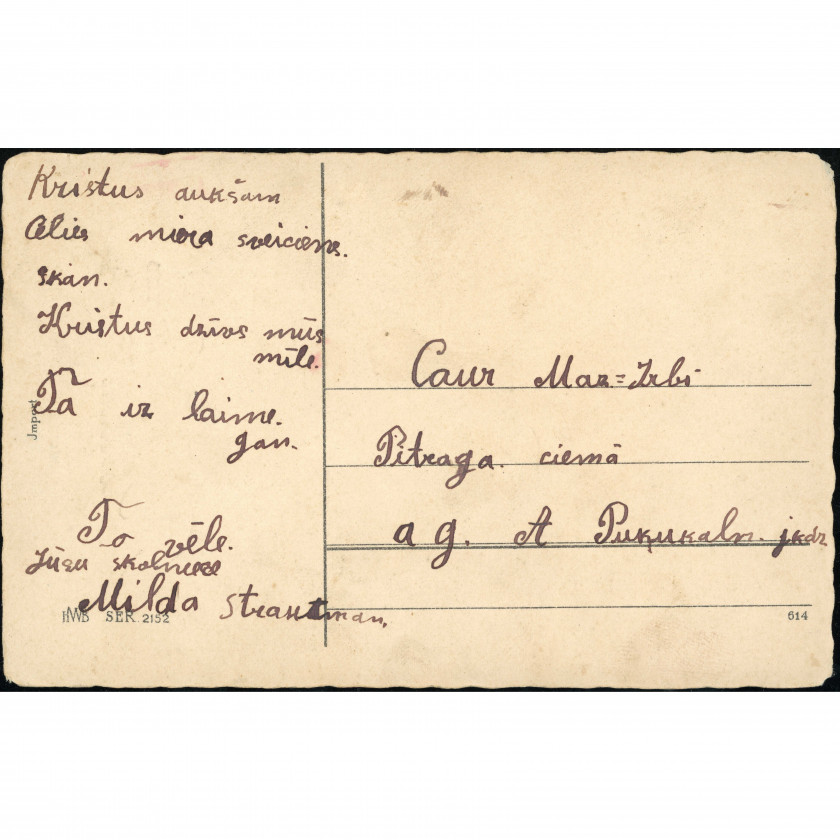 Kristus aukšam
Celies miera sveiciens.
skan.
Kristus dzīvs mūs
mīle.
Tā ir laime.
gan.
To vēle.
Jūsu skolniece
Milda Strautman.
Import
HWB SER. 2152
Caur Maz=Irbi
Pitraga ciemā
a g. A Pukukaln. jkdz
614